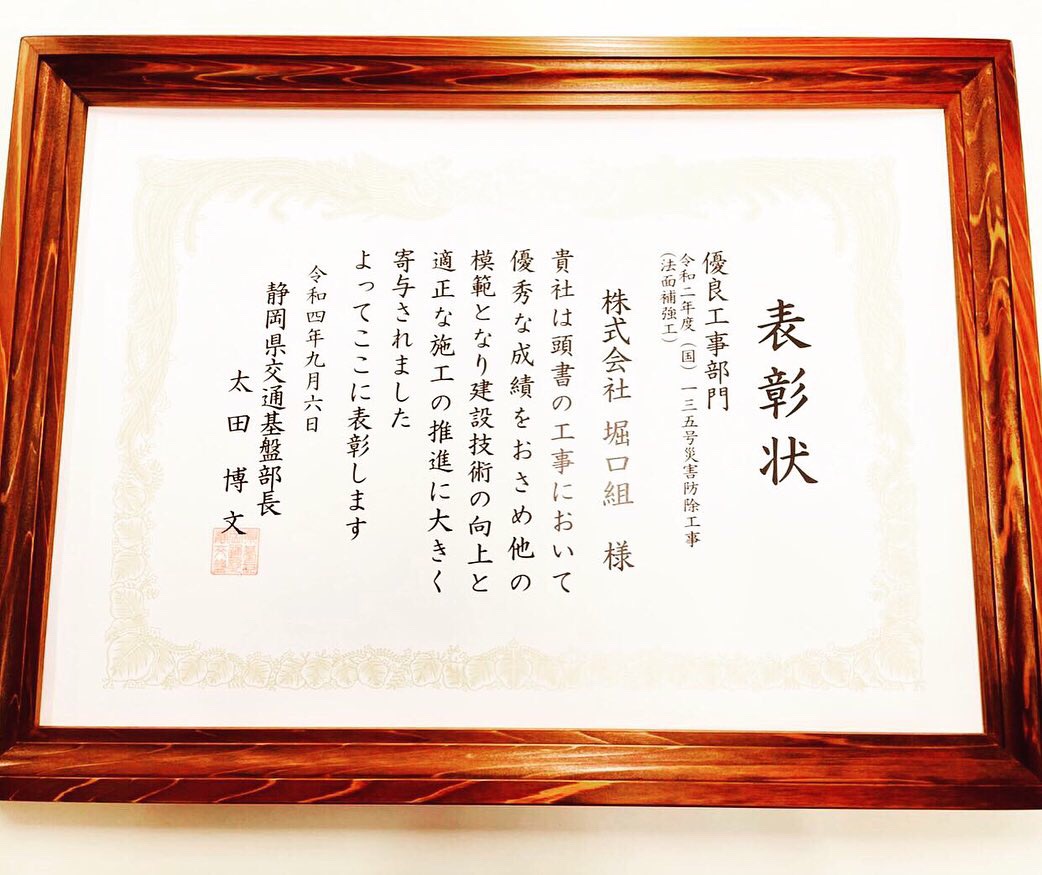 表彰状
優良工事部門
令和二年度（国）一三五号災害防除工事
（法面補強工）
株式会社 堀口組 様
貴社は頭書の工事において
優秀な成績をおさめ他の
模範となり建設技術の向上と
適正な施工の推進に大きく
寄与されました
よってここに表彰します
令和四年九月六日
静岡県交通基盤部長
太田博文